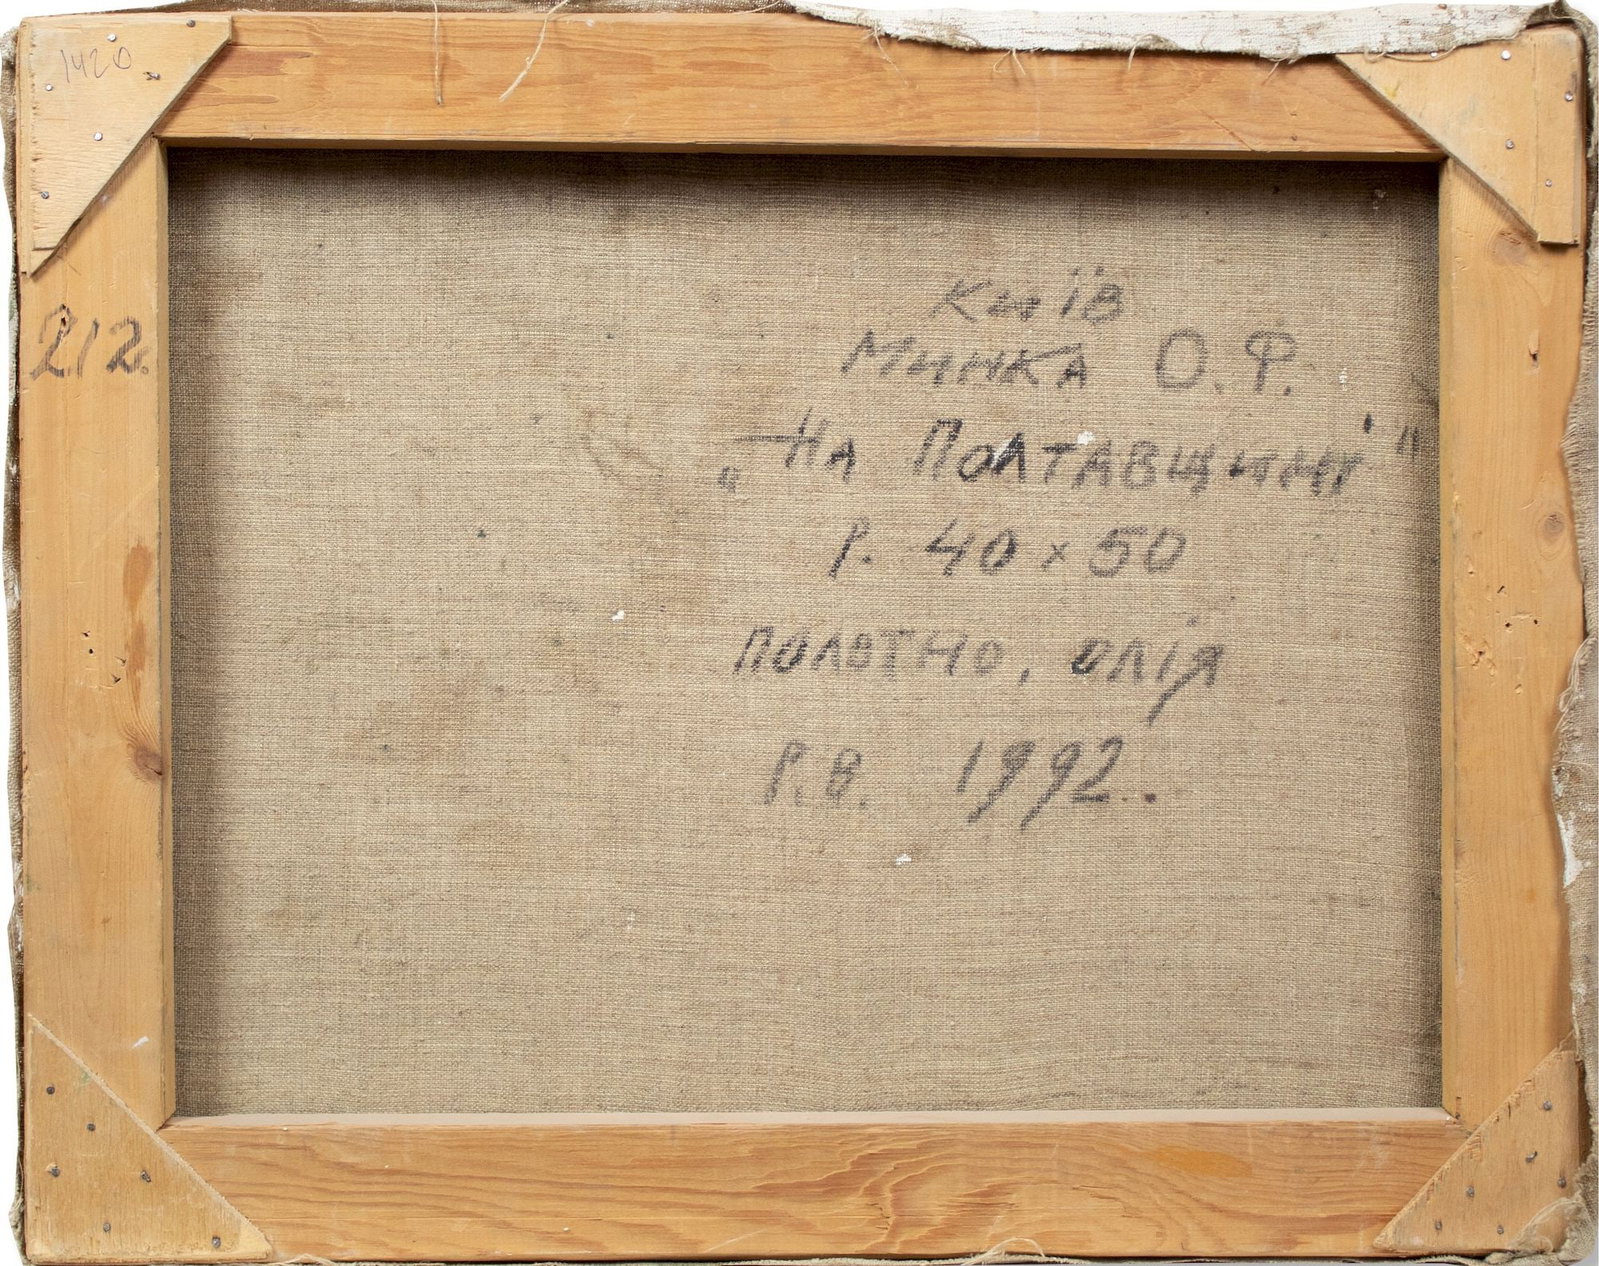 1420
212.
Київ
Минка О.Ф.
„На Полтавщині"
Р. 40 x 50
полотно, олія
Р.В. 1992.